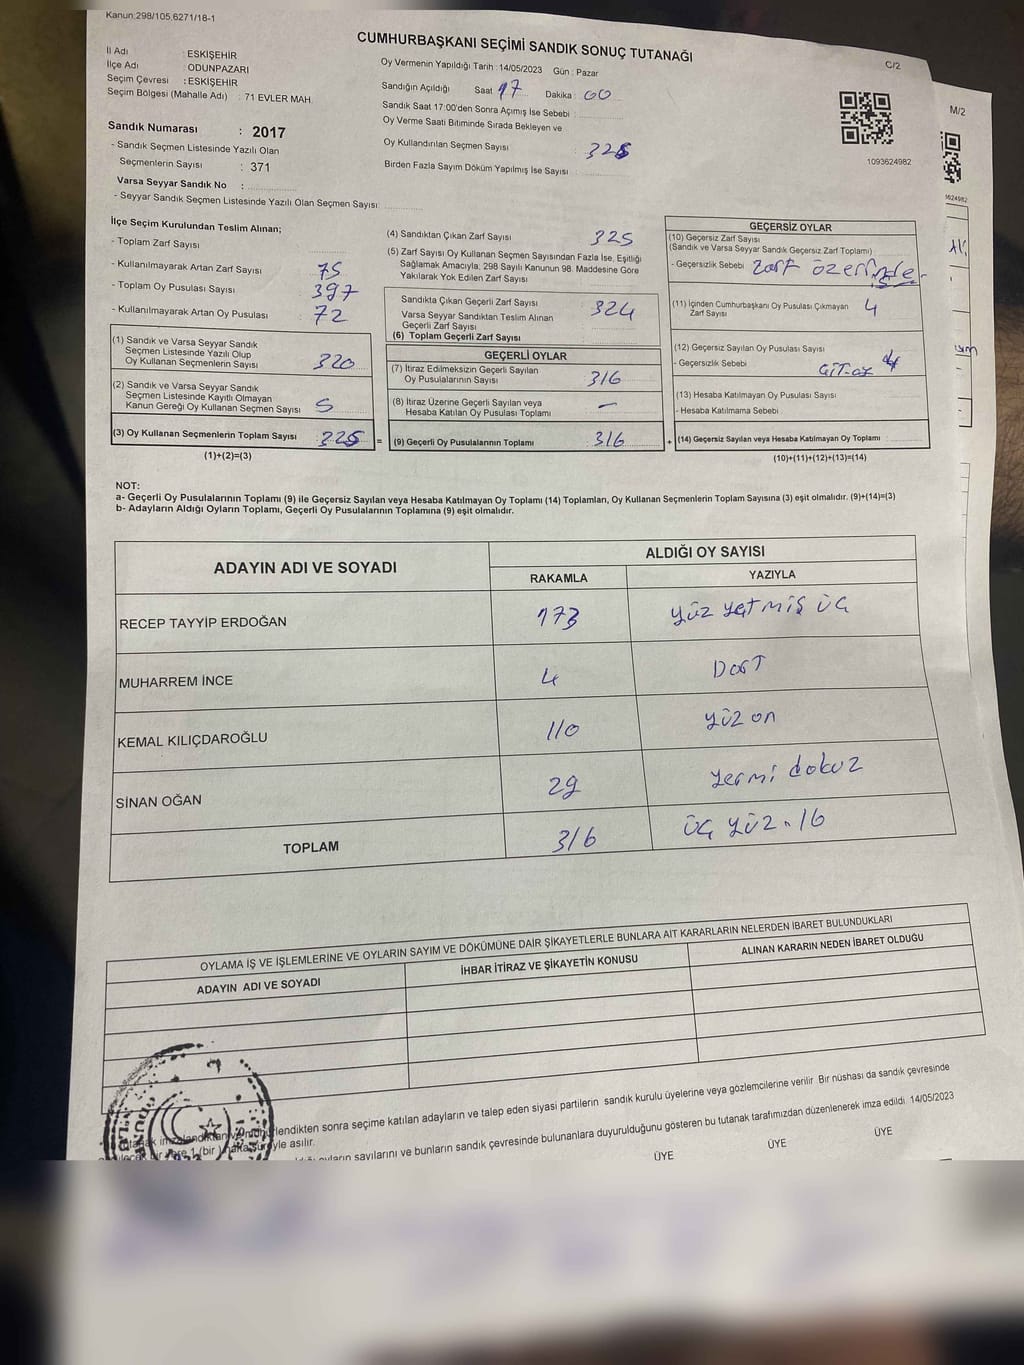 Kanun:298/105,6271/18-1
CUMHURBAŞKANI SEÇİMİ SANDIK SONUÇ TUTANAĞI
C/2
İl Adı : ESKİŞEHİR
İlçe Adı : ODUNPAZARI
Seçim Çevresi : ESKİŞEHİR
Seçim Bölgesi (Mahalle Adı) : 71 EVLER MAH.
Sandık Numarası : 2017
- Sandık Seçmen Listesinde Yazılı Olan
Seçmenlerin Sayısı : 371
Varsa Seyyar Sandık No :
- Seyyar Sandık Seçmen Listesinde Yazılı Olan Seçmen Sayısı:
Oy Vermenin Yapıldığı Tarih :14/05/2023 Gün : Pazar
Sandığın Açıldığı Saat 17 Dakika : 00
Sandık Saat 17:00'den Sonra Açımış İse Sebebi :
Oy Verme Saati Bitiminde Sırada Bekleyen ve
Oy Kullandırılan Seçmen Sayısı : 325
Birden Fazla Sayım Döküm Yapılmış İse Sayısı :
1093624982
M/2
İlçe Seçim Kurulundan Teslim Alınan;
- Toplam Zarf Sayısı
- Kullanılmayarak Artan Zarf Sayısı 75
- Toplam Oy Pusulası Sayısı 397
- Kullanılmayarak Artan Oy Pusulası 72
(1) Sandık ve Varsa Seyyar Sandık
Seçmen Listesinde Yazılı Olup
Oy Kullanan Seçmenlerin Sayısı 320
(2) Sandık ve Varsa Seyyar Sandık
Seçmen Listesinde Kayıtlı Olmayan
Kanun Gereği Oy Kullanan Seçmen Sayısı 5
(3) Oy Kullanan Seçmenlerin Toplam Sayısı 325 =
(1)+(2)=(3)
(4) Sandıktan Çıkan Zarf Sayısı 325
(5) Zarf Sayısı Oy Kullanan Seçmen Sayısından Fazla İse, Eşitliği
Sağlamak Amacıyla, 298 Sayılı Kanunun 98. Maddesine Göre
Yakılarak Yok Edilen Zarf Sayısı
Sandıkta Çıkan Geçerli Zarf Sayısı 324
Varsa Seyyar Sandıktan Teslim Alınan
Geçerli Zarf Sayısı
(6) Toplam Geçerli Zarf Sayısı
GEÇERLİ OYLAR
(7) İtiraz Edilmeksizin Geçerli Sayılan
Oy Pusulalarının Sayısı 316
(8) İtiraz Üzerine Geçerli Sayılan veya
Hesaba Katılan Oy Pusulası Toplamı –
(9) Geçerli Oy Pusulalarının Toplamı 316 +
GEÇERSİZ OYLAR
(10) Geçersiz Zarf Sayısı
(Sandık ve Varsa Seyyar Sandık Geçersiz Zarf Toplamı)
- Geçersizlik Sebebi zarf özerinde
(11) İçinden Cumhurbaşkanı Oy Pusulası Çıkmayan
Zarf Sayısı 4
(12) Geçersiz Sayılan Oy Pusulası Sayısı
- Geçersizlik Sebebi
(13) Hesaba Katılmayan Oy Pusulası Sayısı
- Hesaba Katılmama Sebebi
(14) Geçersiz Sayılan veya Hesaba Katılmayan Oy Toplamı
(10)+(11)+(12)+(13)=(14)
NOT:
a- Geçerli Oy Pusulalarının Toplamı (9) ile Geçersiz Sayılan veya Hesaba Katılmayan Oy Toplamı (14) Toplamları, Oy Kullanan Seçmenlerin Toplam Sayısına (3) eşit olmalıdır. (9)+(14)=(3)
b- Adayların Aldığı Oyların Toplamı, Geçerli Oy Pusulalarının Toplamına (9) eşit olmalıdır.
ADAYIN ADI VE SOYADI ALDIĞI OY SAYISI
RAKAMLA YAZIYLA
RECEP TAYYİP ERDOĞAN 173 yüz yetmiş üç
MUHARREM İNCE 4 Dört
KEMAL KILIÇDAROĞLU 110 yüz on
SİNAN OĞAN 29 yermi dokuz
TOPLAM 316 üç yüz. 16
OYLAMA İŞ VE İŞLEMLERİNE VE OYLARIN SAYIM VE DÖKÜMÜNE DAİR ŞİKAYETLERLE BUNLARA AİT KARARLARIN NELERDEN İBARET BULUNDUKLARI
ADAYIN ADI VE SOYADI İHBAR İTİRAZ VE ŞİKAYETİN KONUSU ALINAN KARARIN NEDEN İBARET OLDUĞU
sonra seçime katılan adayların ve talep eden siyasi partilerin sandık kurulu üyelerine veya gözlemcilerine verilir. Bir nüshası da sandık çevresinde
asılır.
sayılarını ve bunların sandık çevresinde bulunanlara duyurulduğunu gösteren bu tutanak tarafımızdan düzenlenerek imza edildi. 14/05/2023
ÜYE ÜYE ÜYE